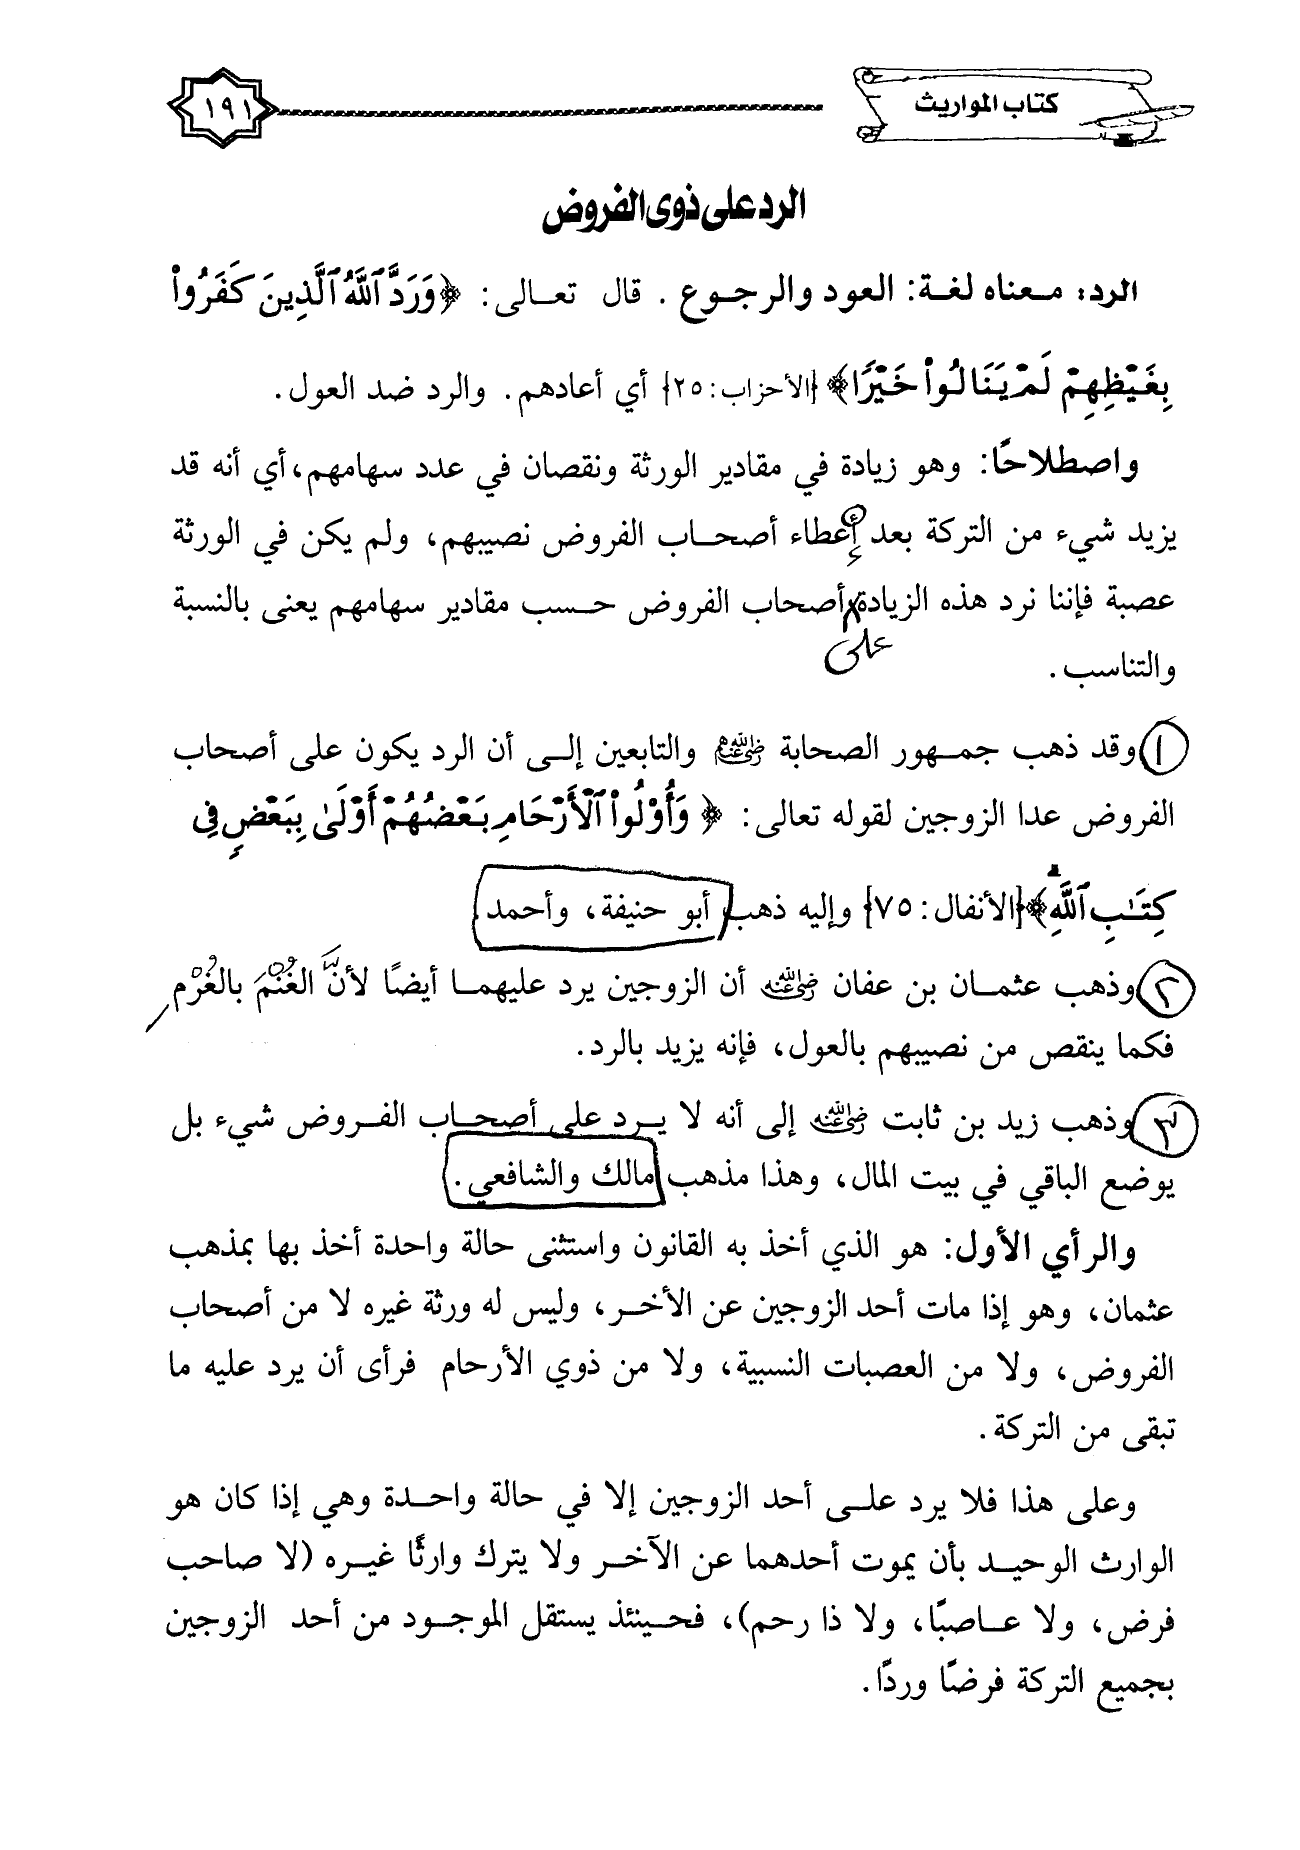 كتاب المواريث
١٩١
الرد على ذوى الفروض
الرد: معناه لغة: العود والرجوع. قال تعالى: ﴿وَرَدَّ ٱللَّهُ ٱلَّذِينَ كَفَرُوا۟
بِغَيْظِهِمْ لَمْ يَنَالُوا۟ خَيْرًا﴾ [الأحزاب: ٢٥] أي أعادهم. والرد ضد العول.
واصطلاحًا: وهو زيادة في مقادير الورثة ونقصان في عدد سهامهم، أي أنه قد
يزيد شيء من التركة بعد إعطاء أصحاب الفروض نصيبهم، ولم يكن في الورثة
عصبة فإننا نرد هذه الزيادة أصحاب الفروض حسب مقادير سهامهم يعنى بالنسبة
على
والتناسب.
١ وقد ذهب جمهور الصحابة رضي الله عنهم والتابعين إلى أن الرد يكون على أصحاب
الفروض عدا الزوجين لقوله تعالى: ﴿وَأُو۟لُوا۟ ٱلْأَرْحَامِ بَعْضُهُمْ أَوْلَىٰ بِبَعْضٍ فِى
كِتَـٰبِ ٱللَّهِ﴾ [الأنفال: ٧٥] وإليه ذهب أبو حنيفة، وأحمد.
٢ وذهب عثمان بن عفان رضي الله عنه أن الزوجين يرد عليهما أيضًا لأنَّ الغُنْمَ بالغُرْم
فكما ينقص من نصيبهم بالعول، فإنه يزيد بالرد.
٣ وذهب زيد بن ثابت رضي الله عنه إلى أنه لا يرد على أصحاب الفروض شيء بل
يوضع الباقي في بيت المال، وهذا مذهب مالك والشافعي.
والرأي الأول: هو الذي أخذ به القانون واستثنى حالة واحدة أخذ بها بمذهب
عثمان، وهو إذا مات أحد الزوجين عن الأخر، وليس له ورثة غيره لا من أصحاب
الفروض، ولا من العصبات النسبية، ولا من ذوي الأرحام فرأى أن يرد عليه ما
تبقى من التركة.
وعلى هذا فلا يرد على أحد الزوجين إلا في حالة واحدة وهي إذا كان هو
الوارث الوحيد بأن يموت أحدهما عن الآخر ولا يترك وارثًا غيره (لا صاحب
فرض، ولا عاصبًا، ولا ذا رحم)، فحينئذ يستقل الموجود من أحد الزوجين
بجميع التركة فرضًا وردًا.